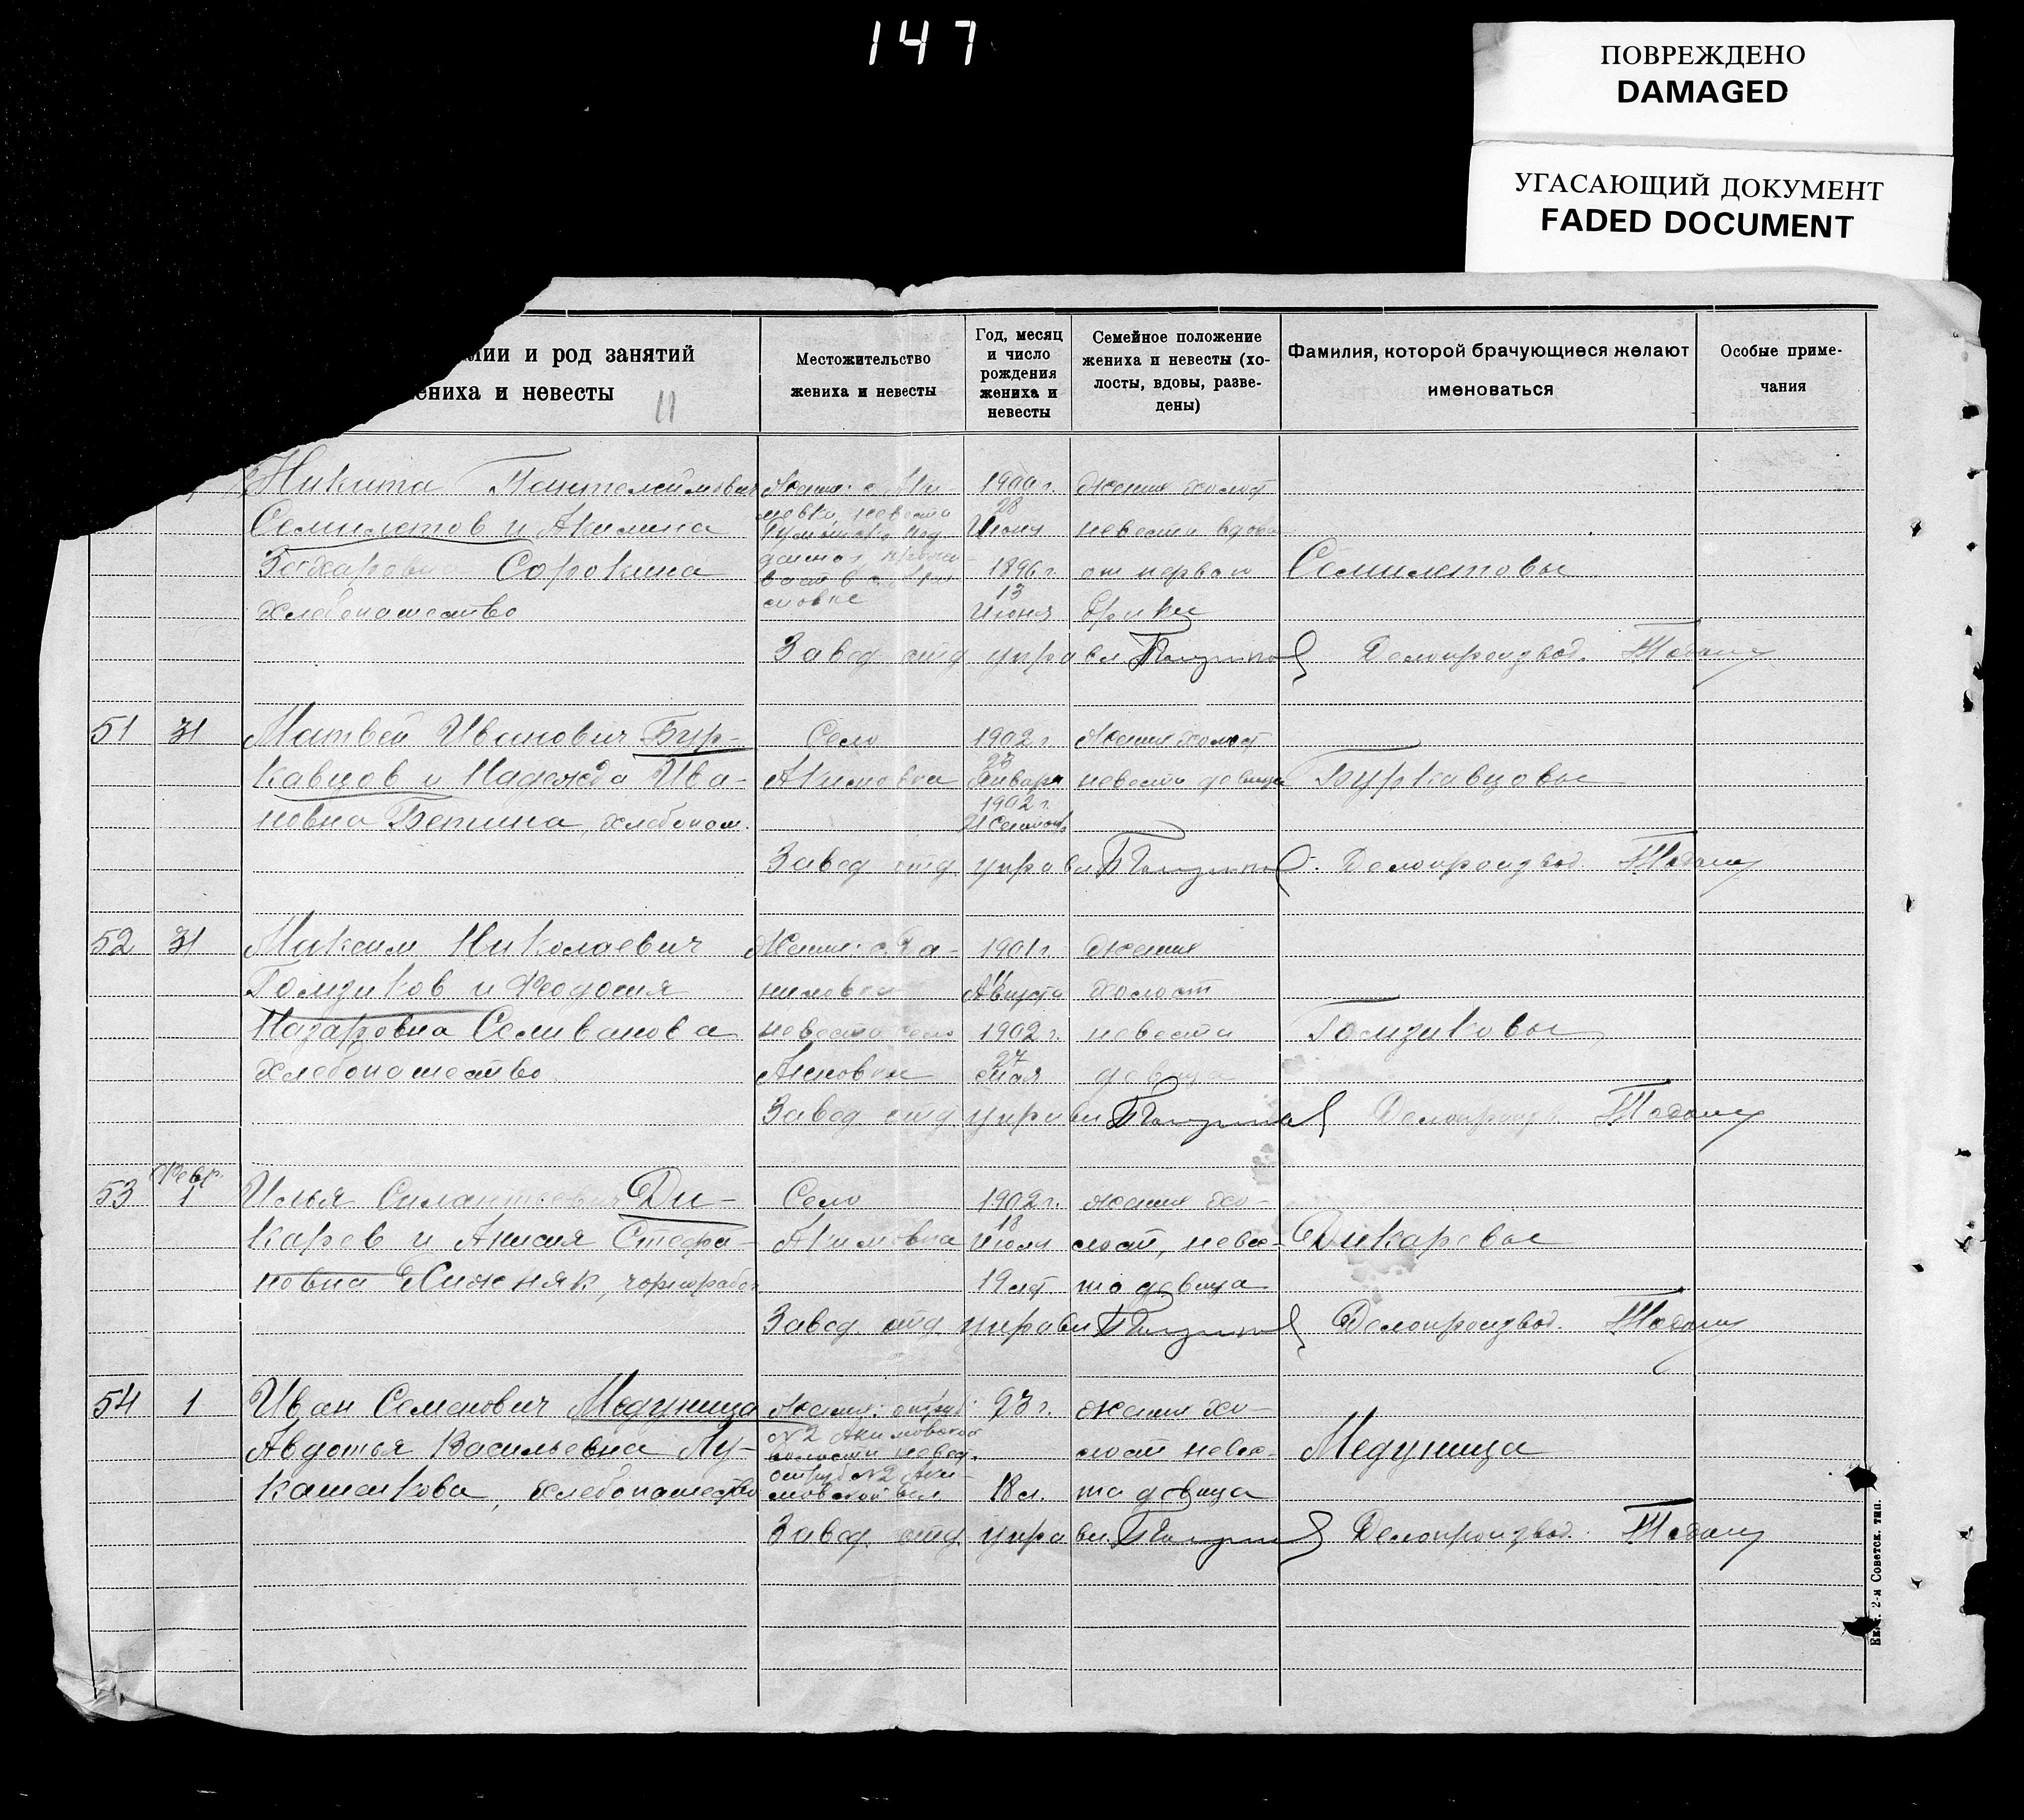 147
ПОВРЕЖДЕНО
DAMAGED
УГАСАЮЩИЙ ДОКУМЕНТ
FADED DOCUMENT
мии и род занятий
ениха и невесты
11
Местожительство
жениха и невесты
Год, месяц
и число
рождения
жениха и
невесты
Семейное положение
жениха и невесты (хо-
лосты, вдовы, разве-
дены)
Фамилия, которой брачующиеся желают
именоваться
Особые приме-
чания
Никита Пантелеймонович
Семилетов и Акилина
Захаровна Сорокина
хлебопашество
1900 г.
28
Июня
1896 г.
13
Июня
жених холост
невеста вдова
от первого
брака
Семилетовы
Завед. отд. управл. Делопроизвод.
51 31
Матвей Иванович Бур-
кавцов и Надежда Ива-
новна Бетина, хлебопаш.
Село
Акимовка
1902 г.
Января
1902 г.
жених холост
невеста девица
Буркавцовы
Завед. отд. управл. Делопроизвод.
52 31
Максим Николаевич
Голзиков и Феодосия
Назаровна Селиванова
хлебопашество
Жених: с. Да-
ниловка
невеста село
Акимовка
1901 г.
Августа
1902 г.
27
мая
жених
холост
невеста
девица
Голзиковы
Завед. отд. управл. Делопроизв.
53 Февр. 1
Илья Силантьевич Ди-
карев и Анисия Стефа-
новна Хижняк, чернорабоч.
Село
Акимовка
1902 г.
18
Июля
19 лет
жених хо-
лост, невес-
та девица
Дикаревы
Завед. отд. управл. Делопроизвод.
54 1
Иван Семенович Медуница
Авдотья Васильевна Лу-
кашенкова, хлебопашество
Жених: отруб
№ 2 Акимовской
волости невес.
отруб № 2 Аки-
мовской вол.
23 г.
18 л.
жених хо-
лост невес-
та девица
Медуница
Завед. отд. управл. Делопроизвод.
2-я Советск. тип.